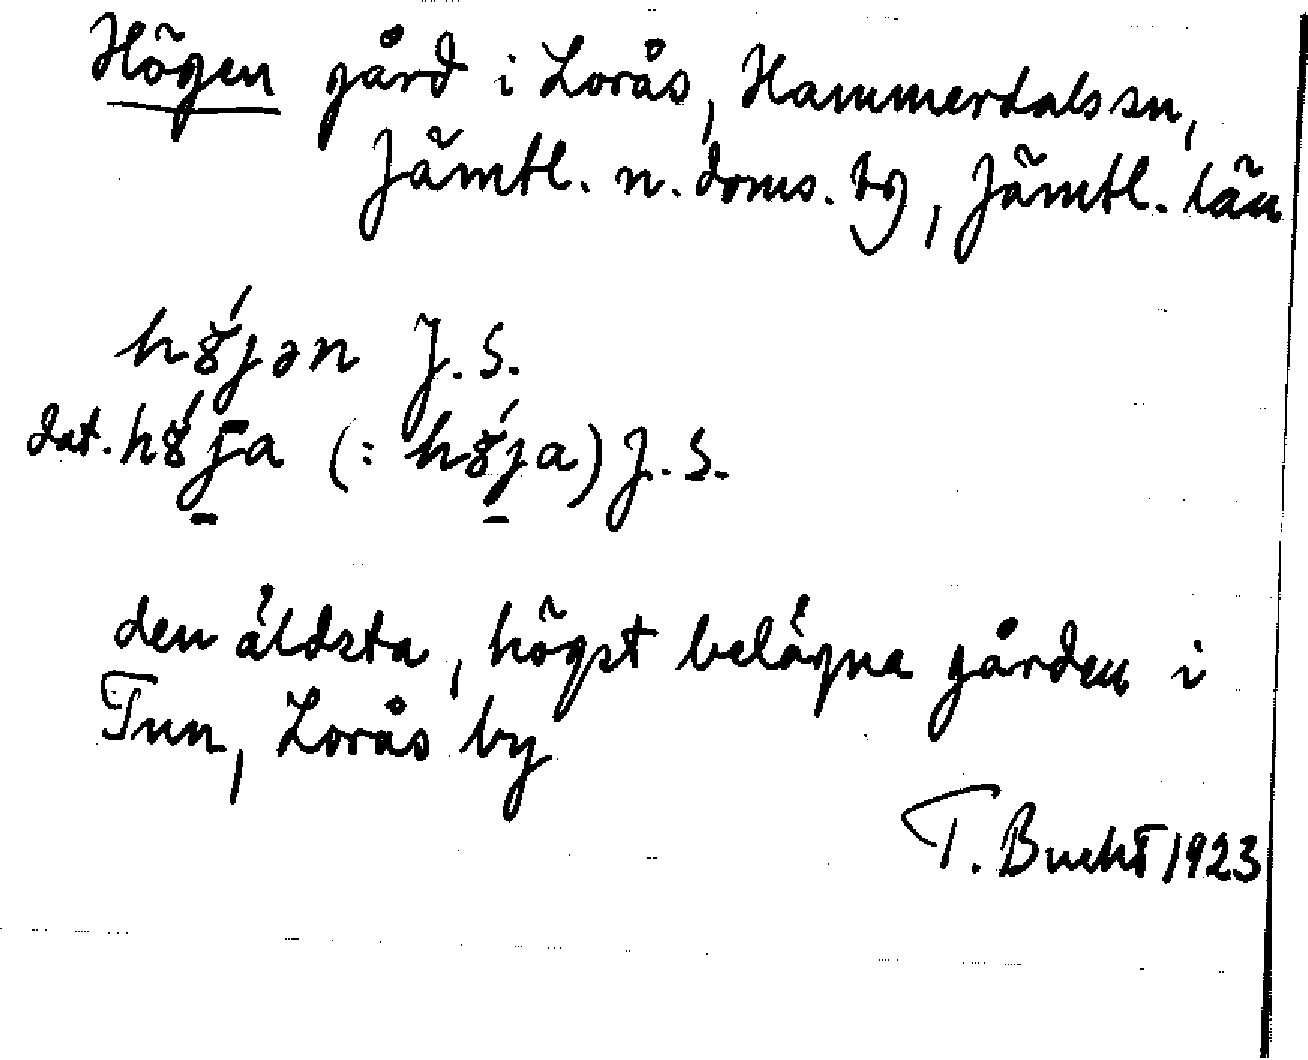 Högen gård i Lorås, Hammerdals sn,
Jämtl. n. doms. tg, Jämtl. län
hɤ́jən J. S.
dat. hɤ́j̄a (: hɤ́ja) J. S.
den äldsta, högst belägna gården i
Tun, Lorås by
T. Bucht 1923